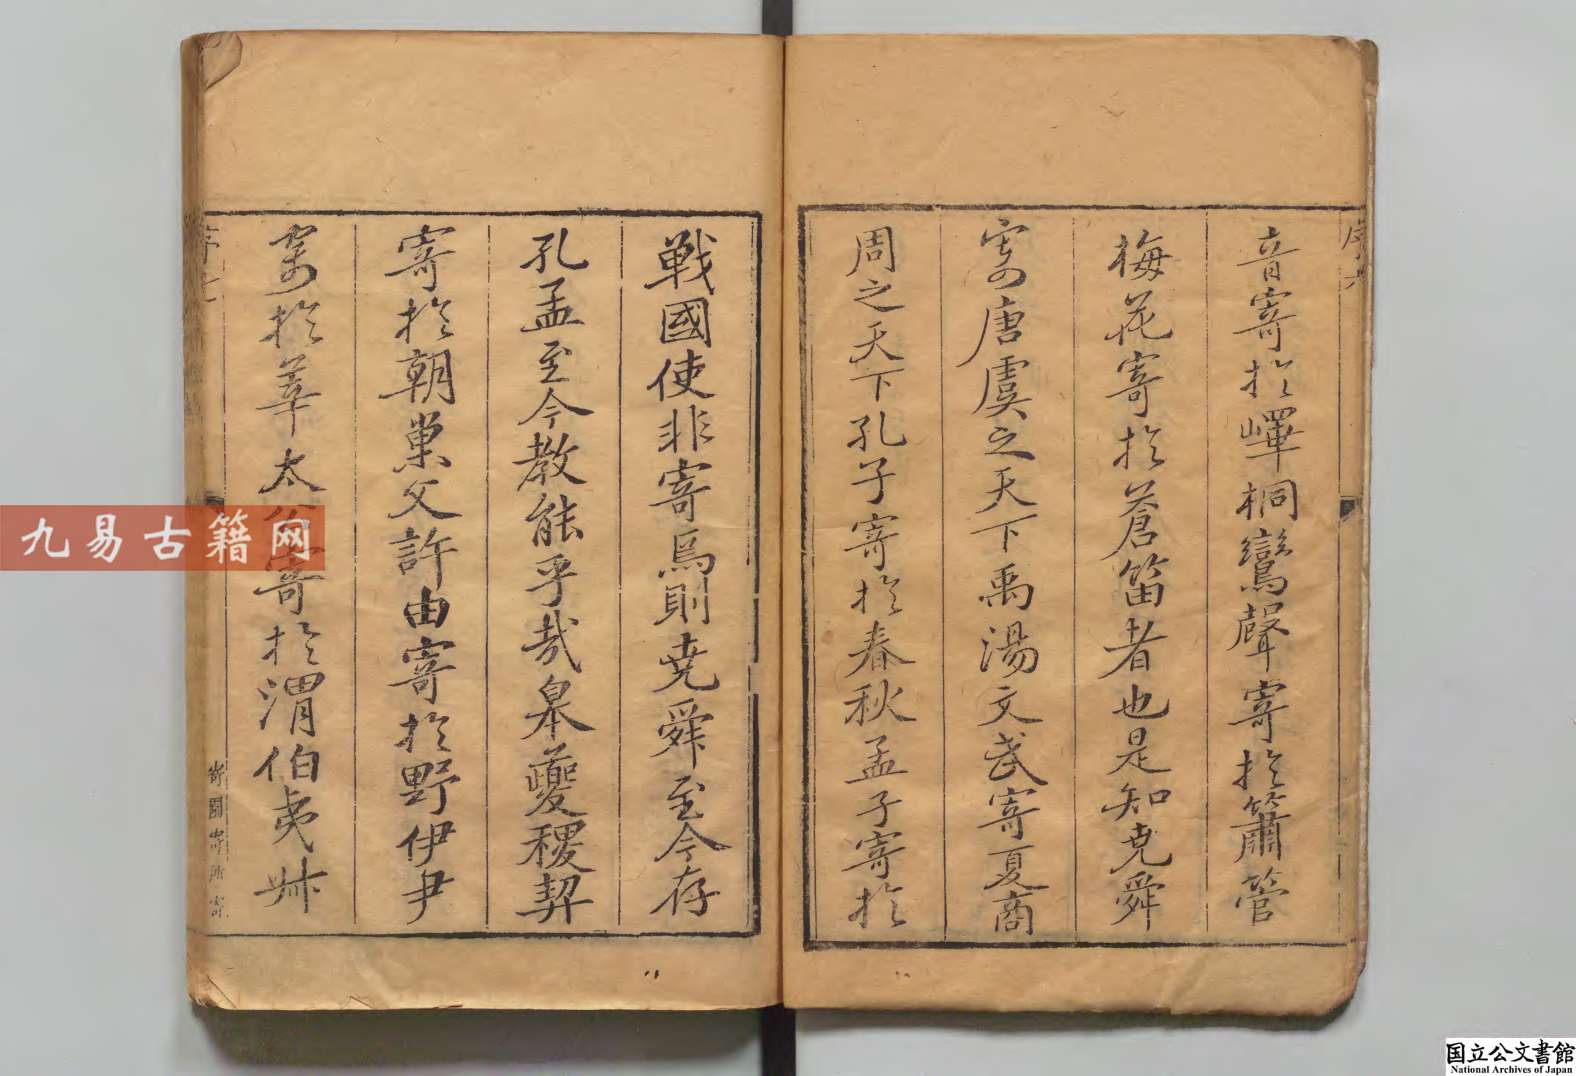 序六
音寄於嶧桐鸞聲寄於簫管
梅花寄於蒼笛者也是知堯舜
寄唐虞之天下禹湯文武寄夏商
周之天下孔子寄於春秋孟子寄於
戰國使非寄焉則堯舜至今存
孔孟至今教能乎哉皋夔稷契
寄於朝巢父許由寄於野伊尹
寄於莘太公寄於渭伯夷
序七
寄園寄所寄
九易古籍网
国立公文書館
National Archives of Japan